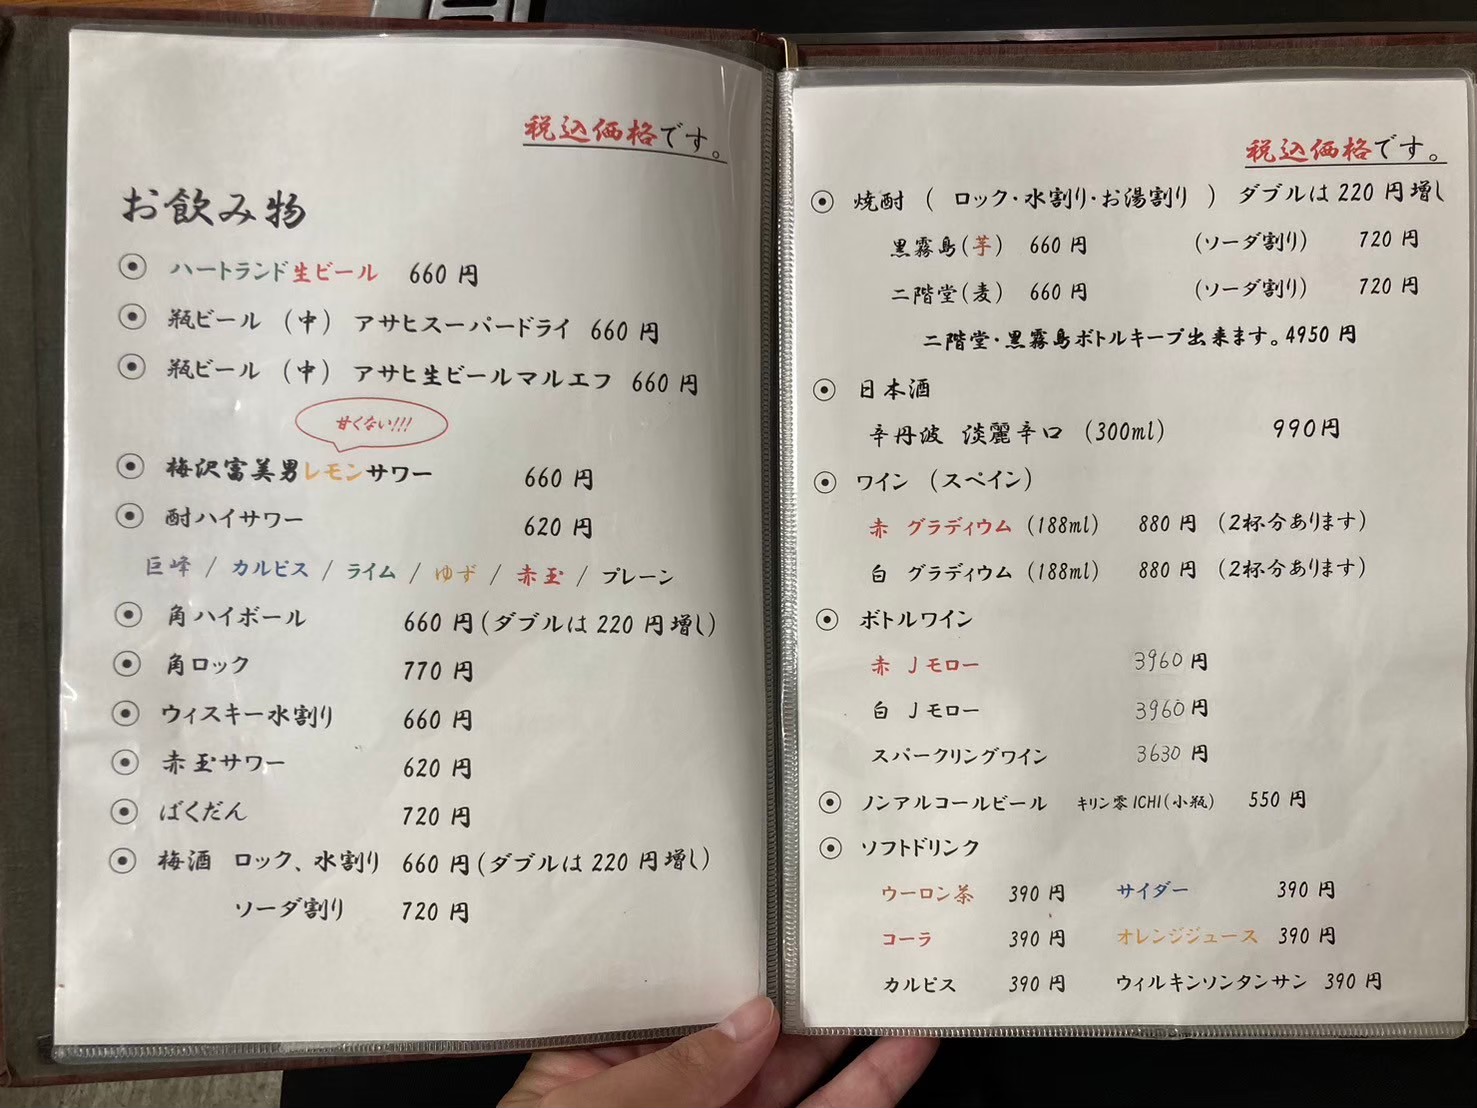 税込価格です。
お飲み物
◉ ハートランド生ビール 660 円
◉ 瓶ビール (中) アサヒスーパードライ 660 円
◉ 瓶ビール (中) アサヒ生ビールマルエフ 660 円
甘くない!!!
◉ 梅沢富美男レモンサワー 660 円
◉ 酎ハイサワー 620 円
巨峰 / カルピス / ライム / ゆず / 赤玉 / プレーン
◉ 角ハイボール 660 円(ダブルは 220 円増し)
◉ 角ロック 770 円
◉ ウィスキー水割り 660 円
◉ 赤玉サワー 620 円
◉ ばくだん 720 円
◉ 梅酒 ロック、水割り 660 円(ダブルは 220 円増し)
ソーダ割り 720 円
税込価格です。
◉ 焼酎 ( ロック・水割り・お湯割り ) ダブルは 220 円増し
黒霧島(芋) 660 円 (ソーダ割り) 720 円
二階堂(麦) 660 円 (ソーダ割り) 720 円
二階堂・黒霧島ボトルキープ出来ます。4950 円
◉ 日本酒
辛丹波 淡麗辛口 (300ml) 990円
◉ ワイン (スペイン)
赤 グラディウム (188ml) 880 円 (2杯分あります)
白 グラディウム (188ml) 880 円 (2杯分あります)
◉ ボトルワイン
赤 Jモロー 3960 円
白 Jモロー 3960 円
スパークリングワイン 3630 円
◉ ノンアルコールビール キリン零ICHI(小瓶) 550 円
◉ ソフトドリンク
ウーロン茶 390 円 サイダー 390 円
コーラ 390 円 オレンジジュース 390 円
カルピス 390 円 ウィルキンソンタンサン 390 円